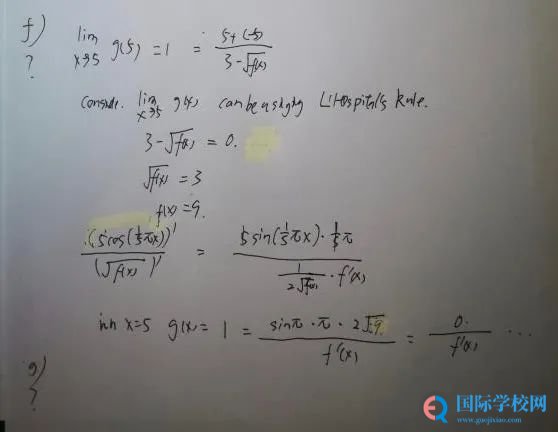 f)
?
lim x→5 g(5) = 1 = 5+(-5) / 3-√f(x)
Conside. lim x→5 g(x) can be using L'Hospital's Rule.
3-√f(x) = 0.
√f(x) = 3
f(x) = 9.
(5cos(1/5πx))' / (√f(x))' = 5sin(1/5πx)·1/5π / 1/2√f(x)·f'(x)
x=5 g(x) = 1 = sinπ·π·2√9 / f'(x) = 0 / f'(x) ...
g)
?
国际学校网
www.guojixiao.com